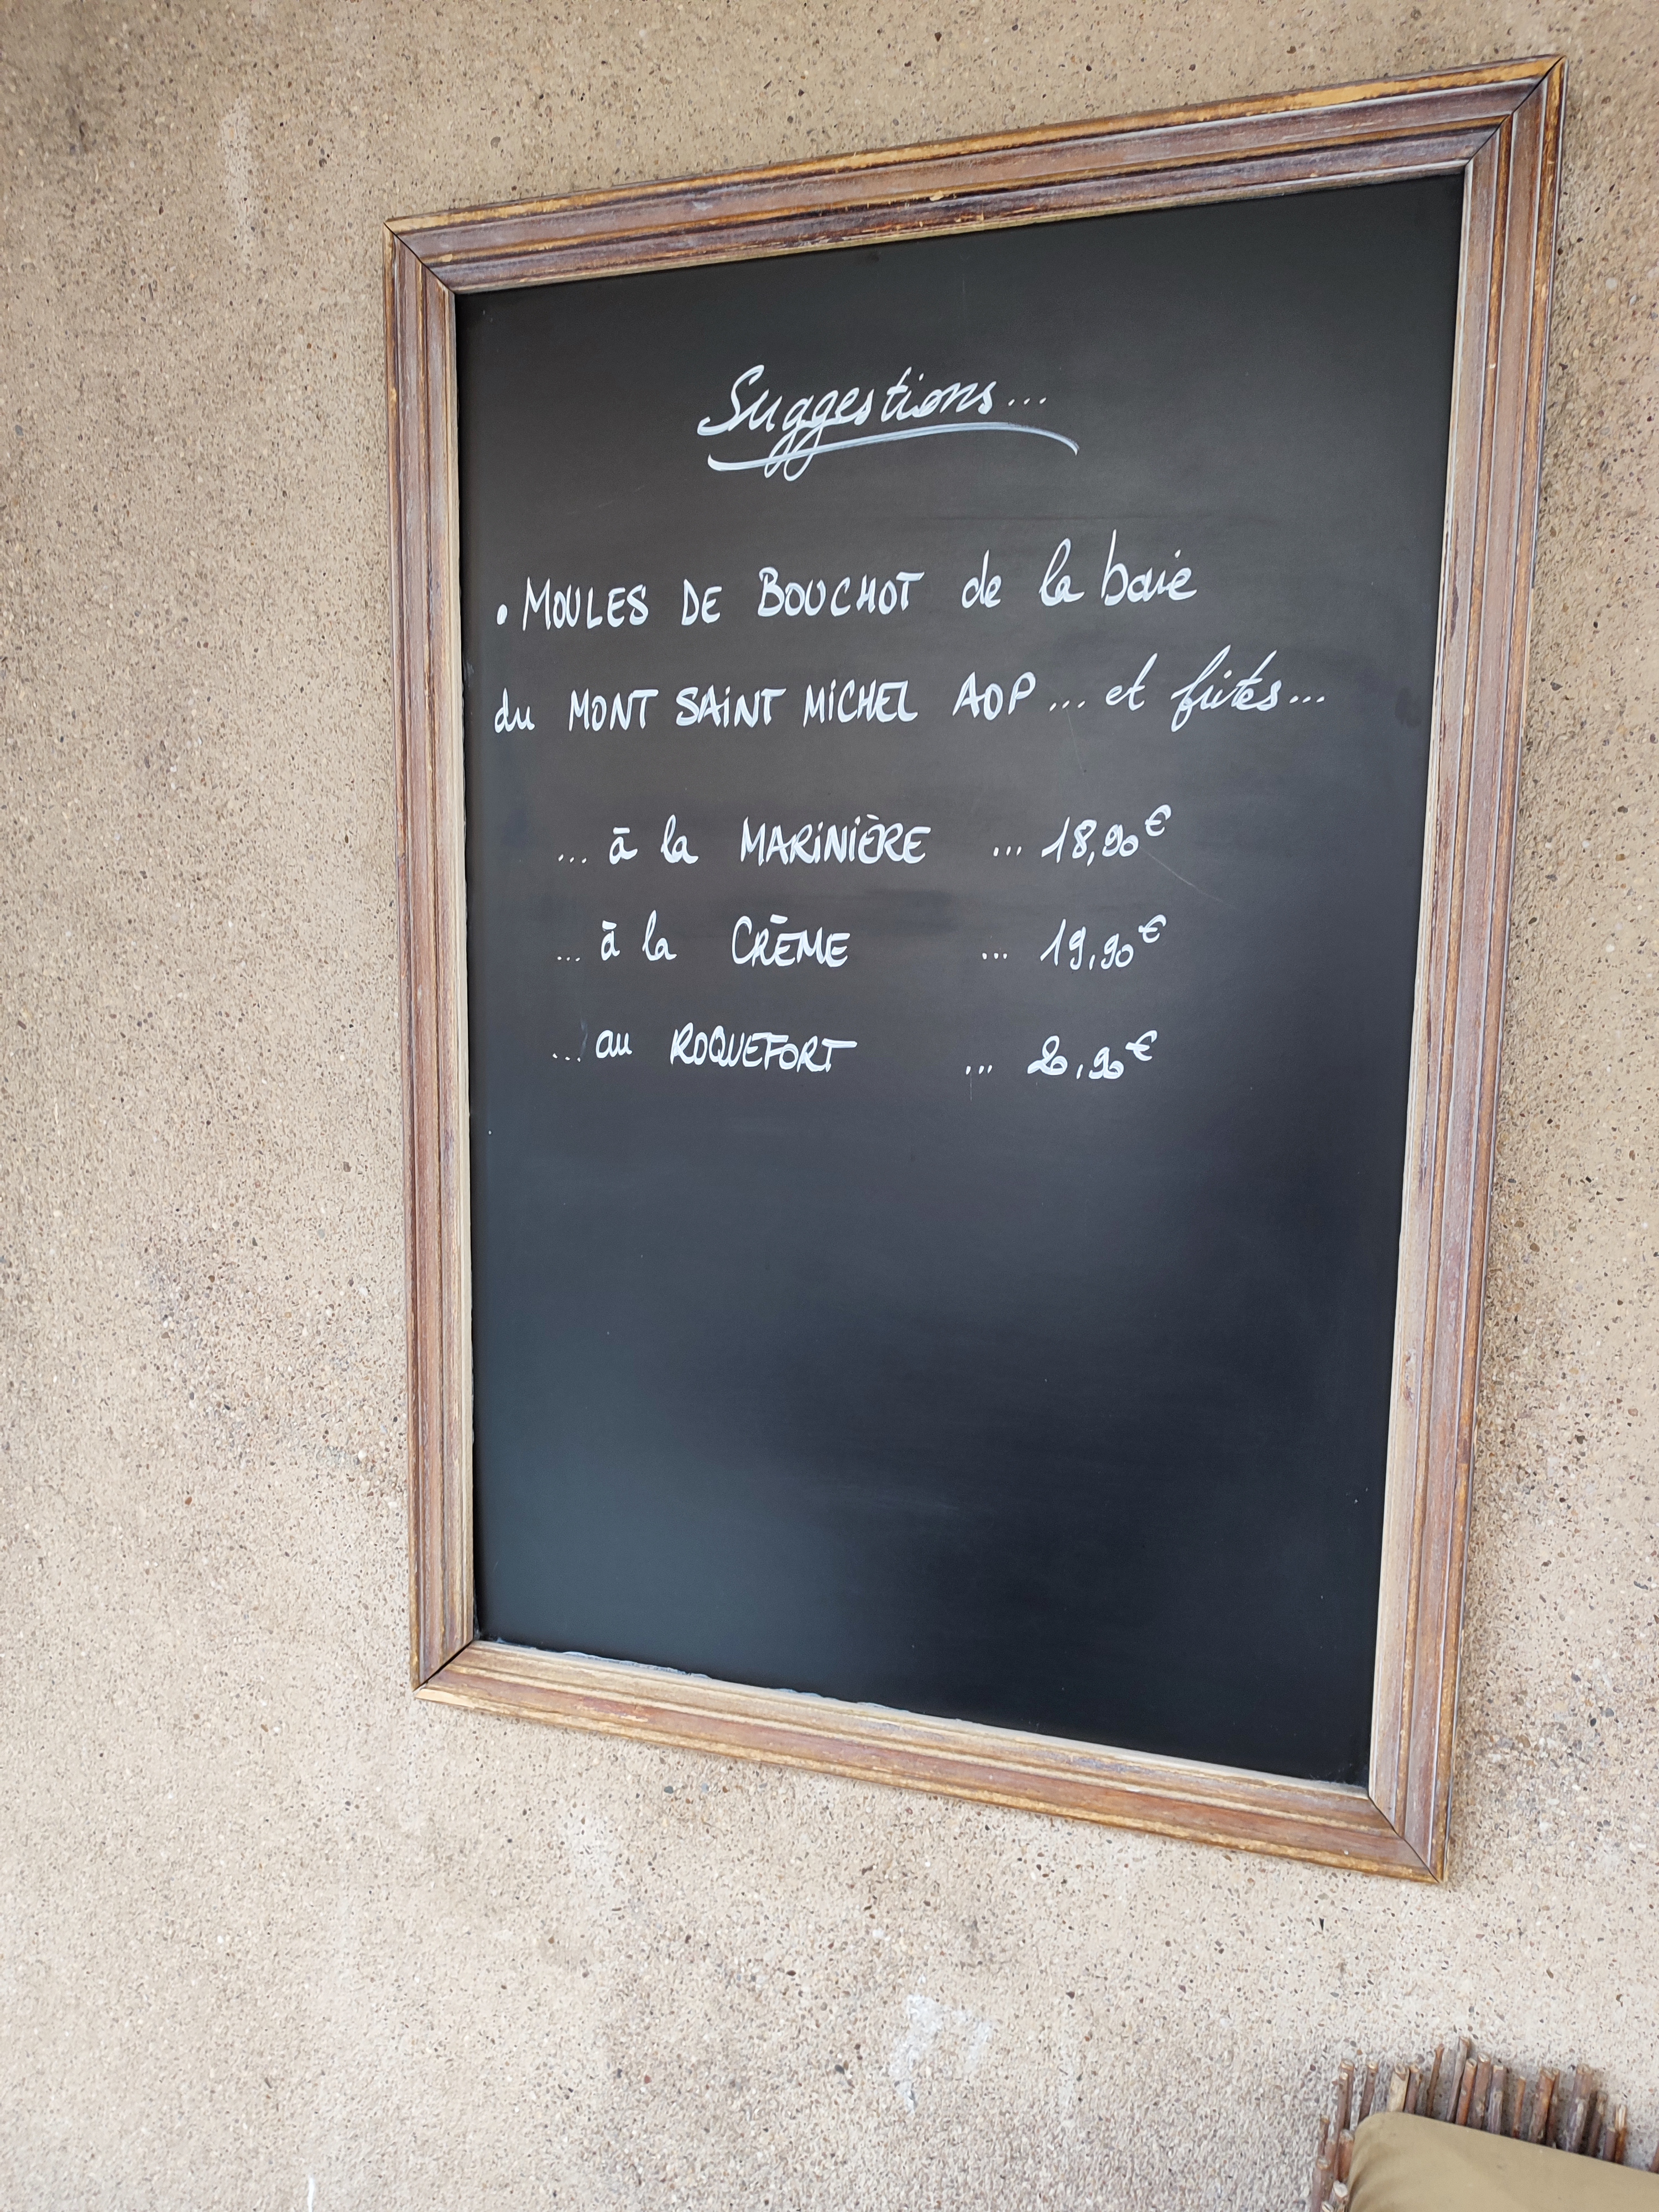 Suggestions...
• MOULES DE BOUCHOT de la baie
du MONT SAINT MICHEL AOP ... et frites...
... à la MARINIÈRE ... 18,90€
... à la CRÈME ... 19,90€
... au ROQUEFORT ... 20,90€